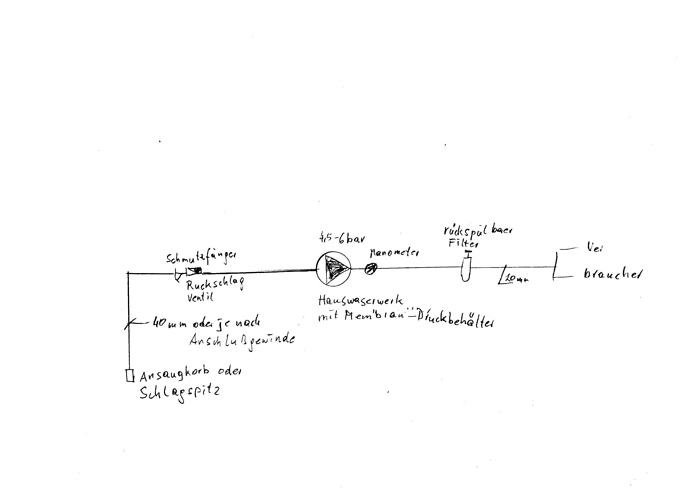 4,5-6bar
rückspülbaer
Filter
Schmutzfänger
Manometer
Ver
braucher
Ruckschlag
Ventil
20mm
Hauswaserwerk
mit Membran-Druckbehälter
40mm oder je nach
Anschlußgewinde
Ansaugkorb oder
Schlagspitz